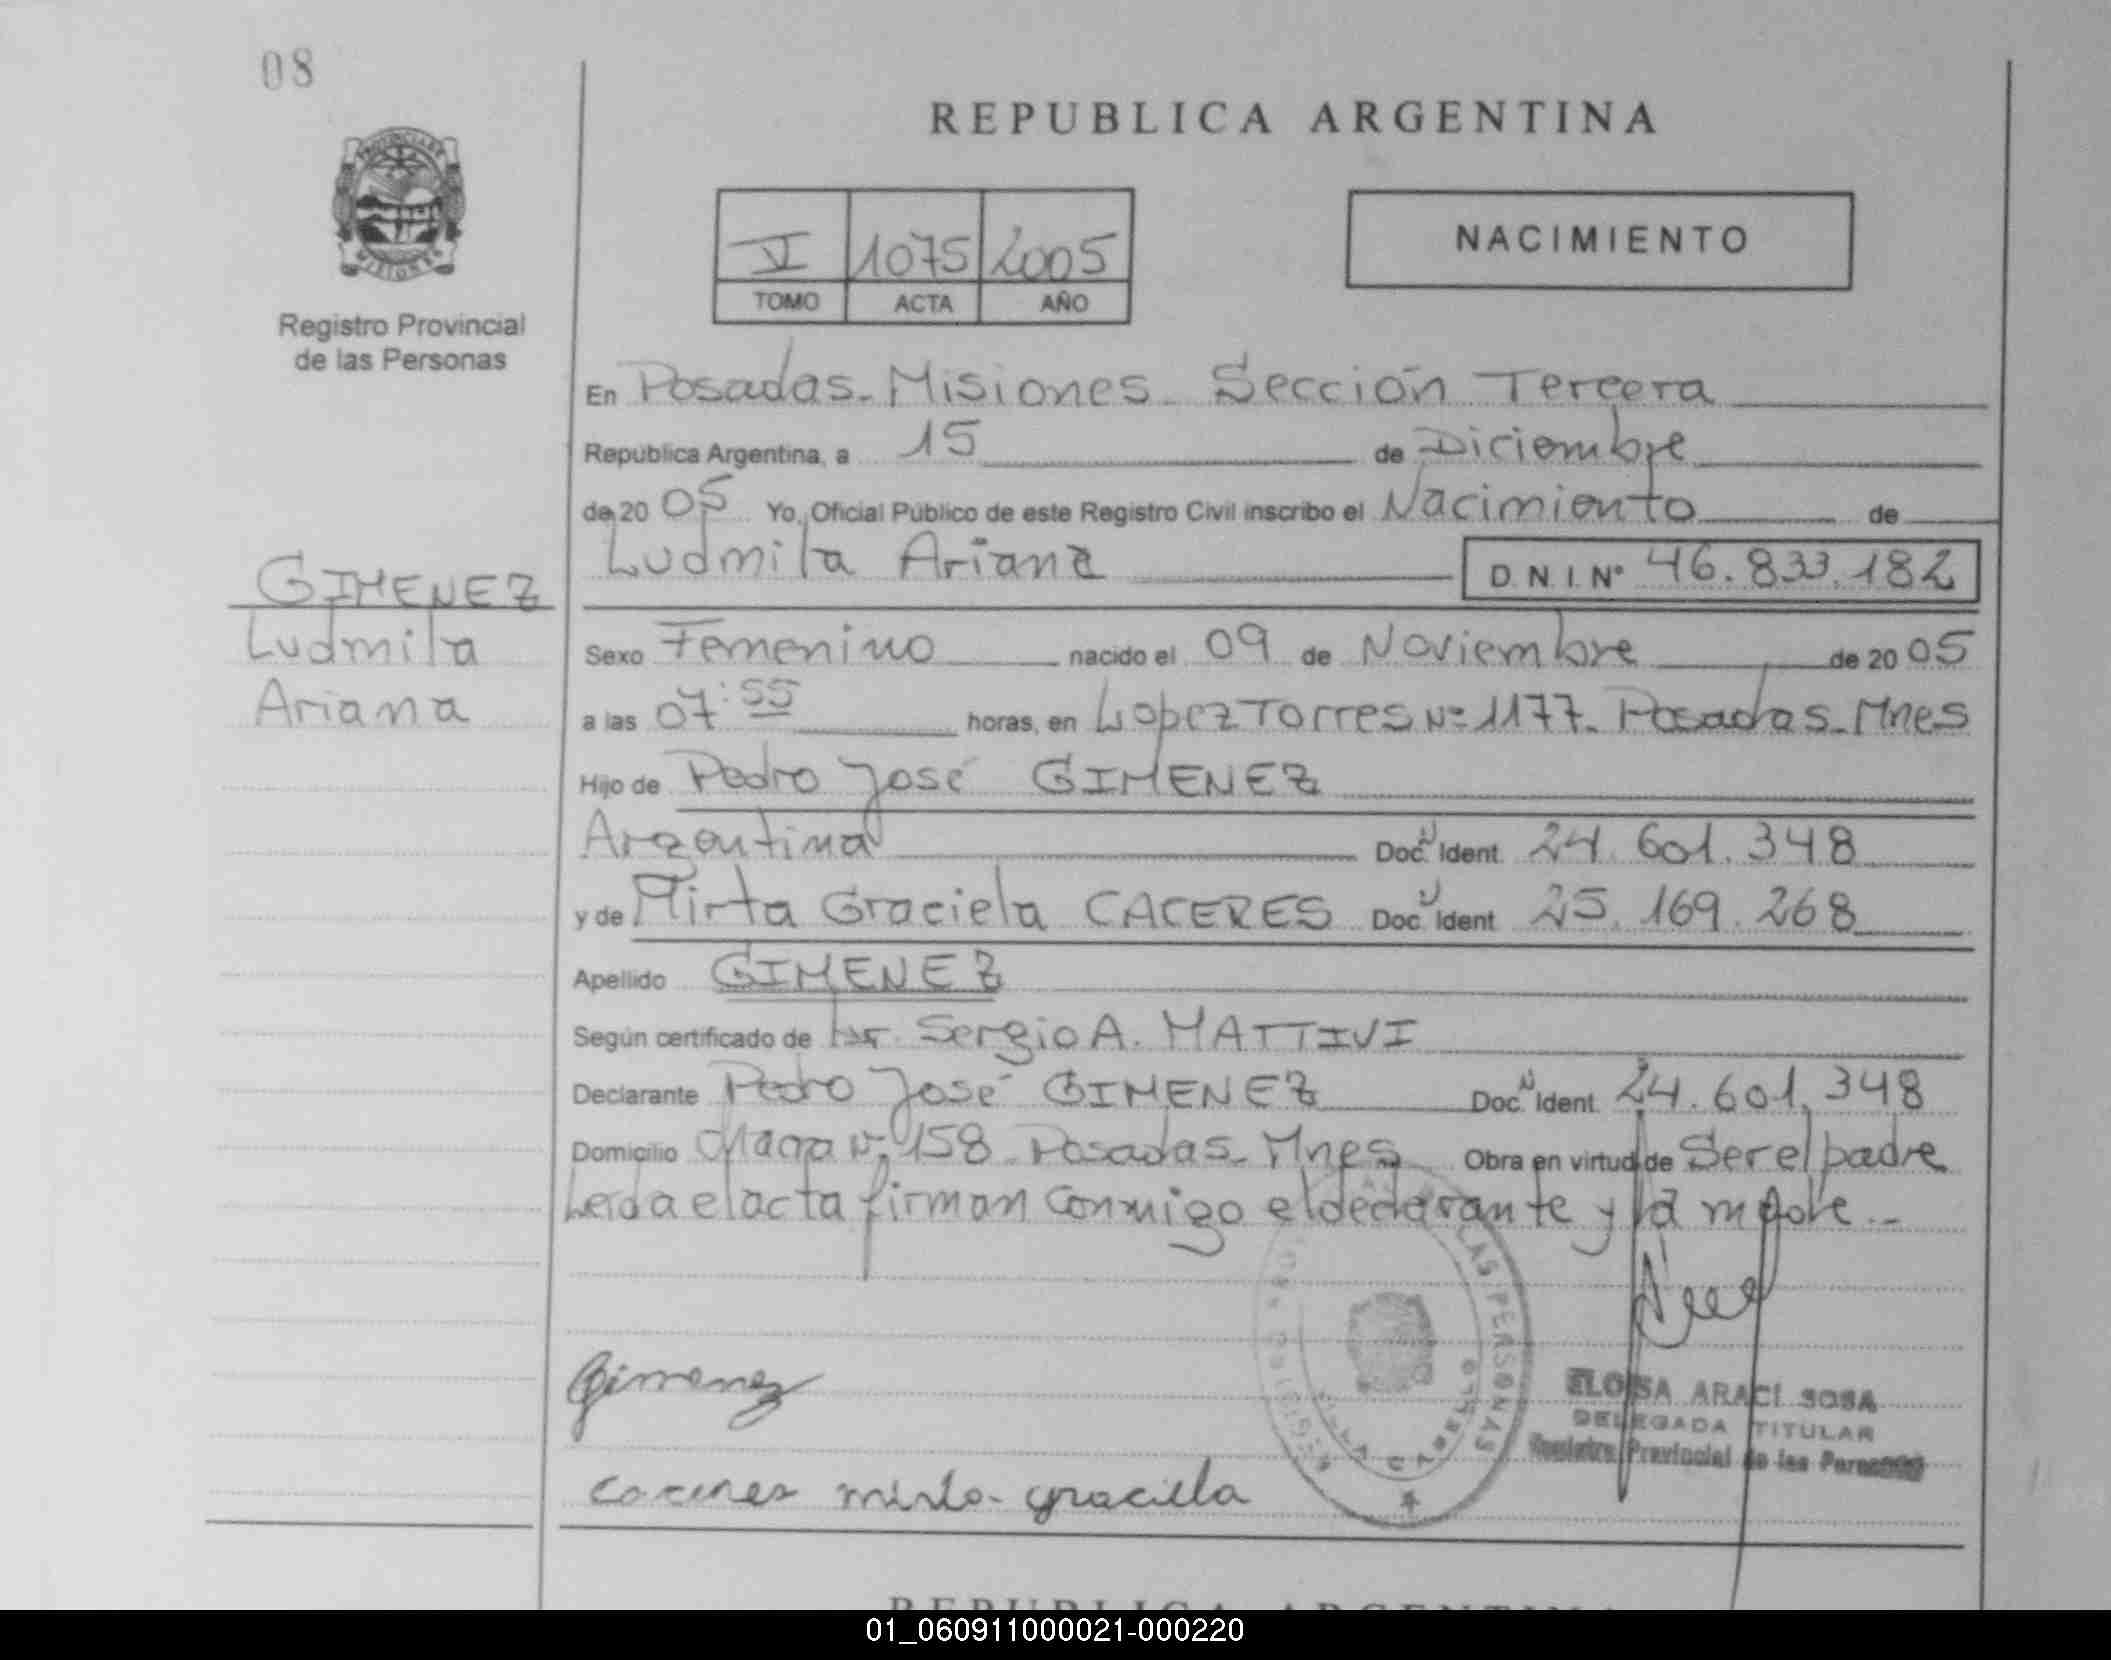 08
REPUBLICA ARGENTINA
V 1075 2005
TOMO ACTA AÑO
NACIMIENTO
Registro Provincial
de las Personas
En Posadas - Misiones - Sección Tercera
República Argentina, a 15 de Diciembre
de 20 05 Yo, Oficial Público de este Registro Civil inscribo el Nacimiento de
Ludmila Ariana D.N.I. Nº 46.833.182
GIMENEZ
Ludmila
Ariana
Sexo Femenino nacido el 09 de Noviembre de 20 05
a las 07:55 horas, en Lopez Torres Nº 1177 - Posadas - Mnes
Hijo de Pedro José GIMENEZ
Argentina Doc. Ident. 24.601.348
y de Mirta Graciela CACERES Doc. Ident. 25.169.268
Apellido GIMENEZ
Según certificado de Dr. Sergio A. MATTIVI
Declarante Pedro José GIMENEZ Doc. Ident. 24.601.348
Domicilio Nº 158 - Posadas - Mnes Obra en virtud de Ser el padre
Leida el acta firman conmigo el declarante y la madre.-
Gimenez
caceres mirta graciela
LAS PERSONAS
ELOISA ARACI SOSA
DELEGADA TITULAR
Registro Provincial de las Personas
REPUBLICA ARGENTINA
01_060911000021-000220